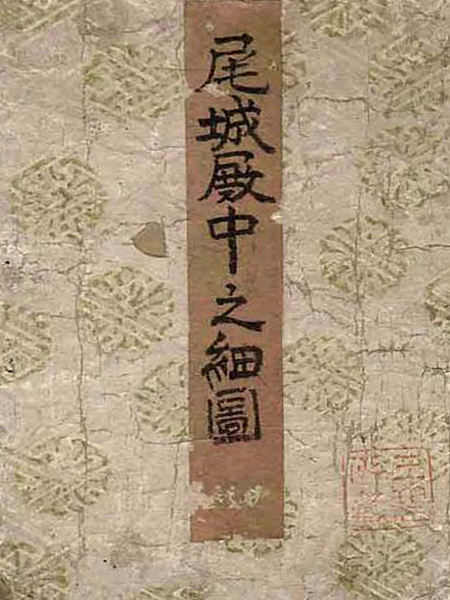 尾城厩中之細圖